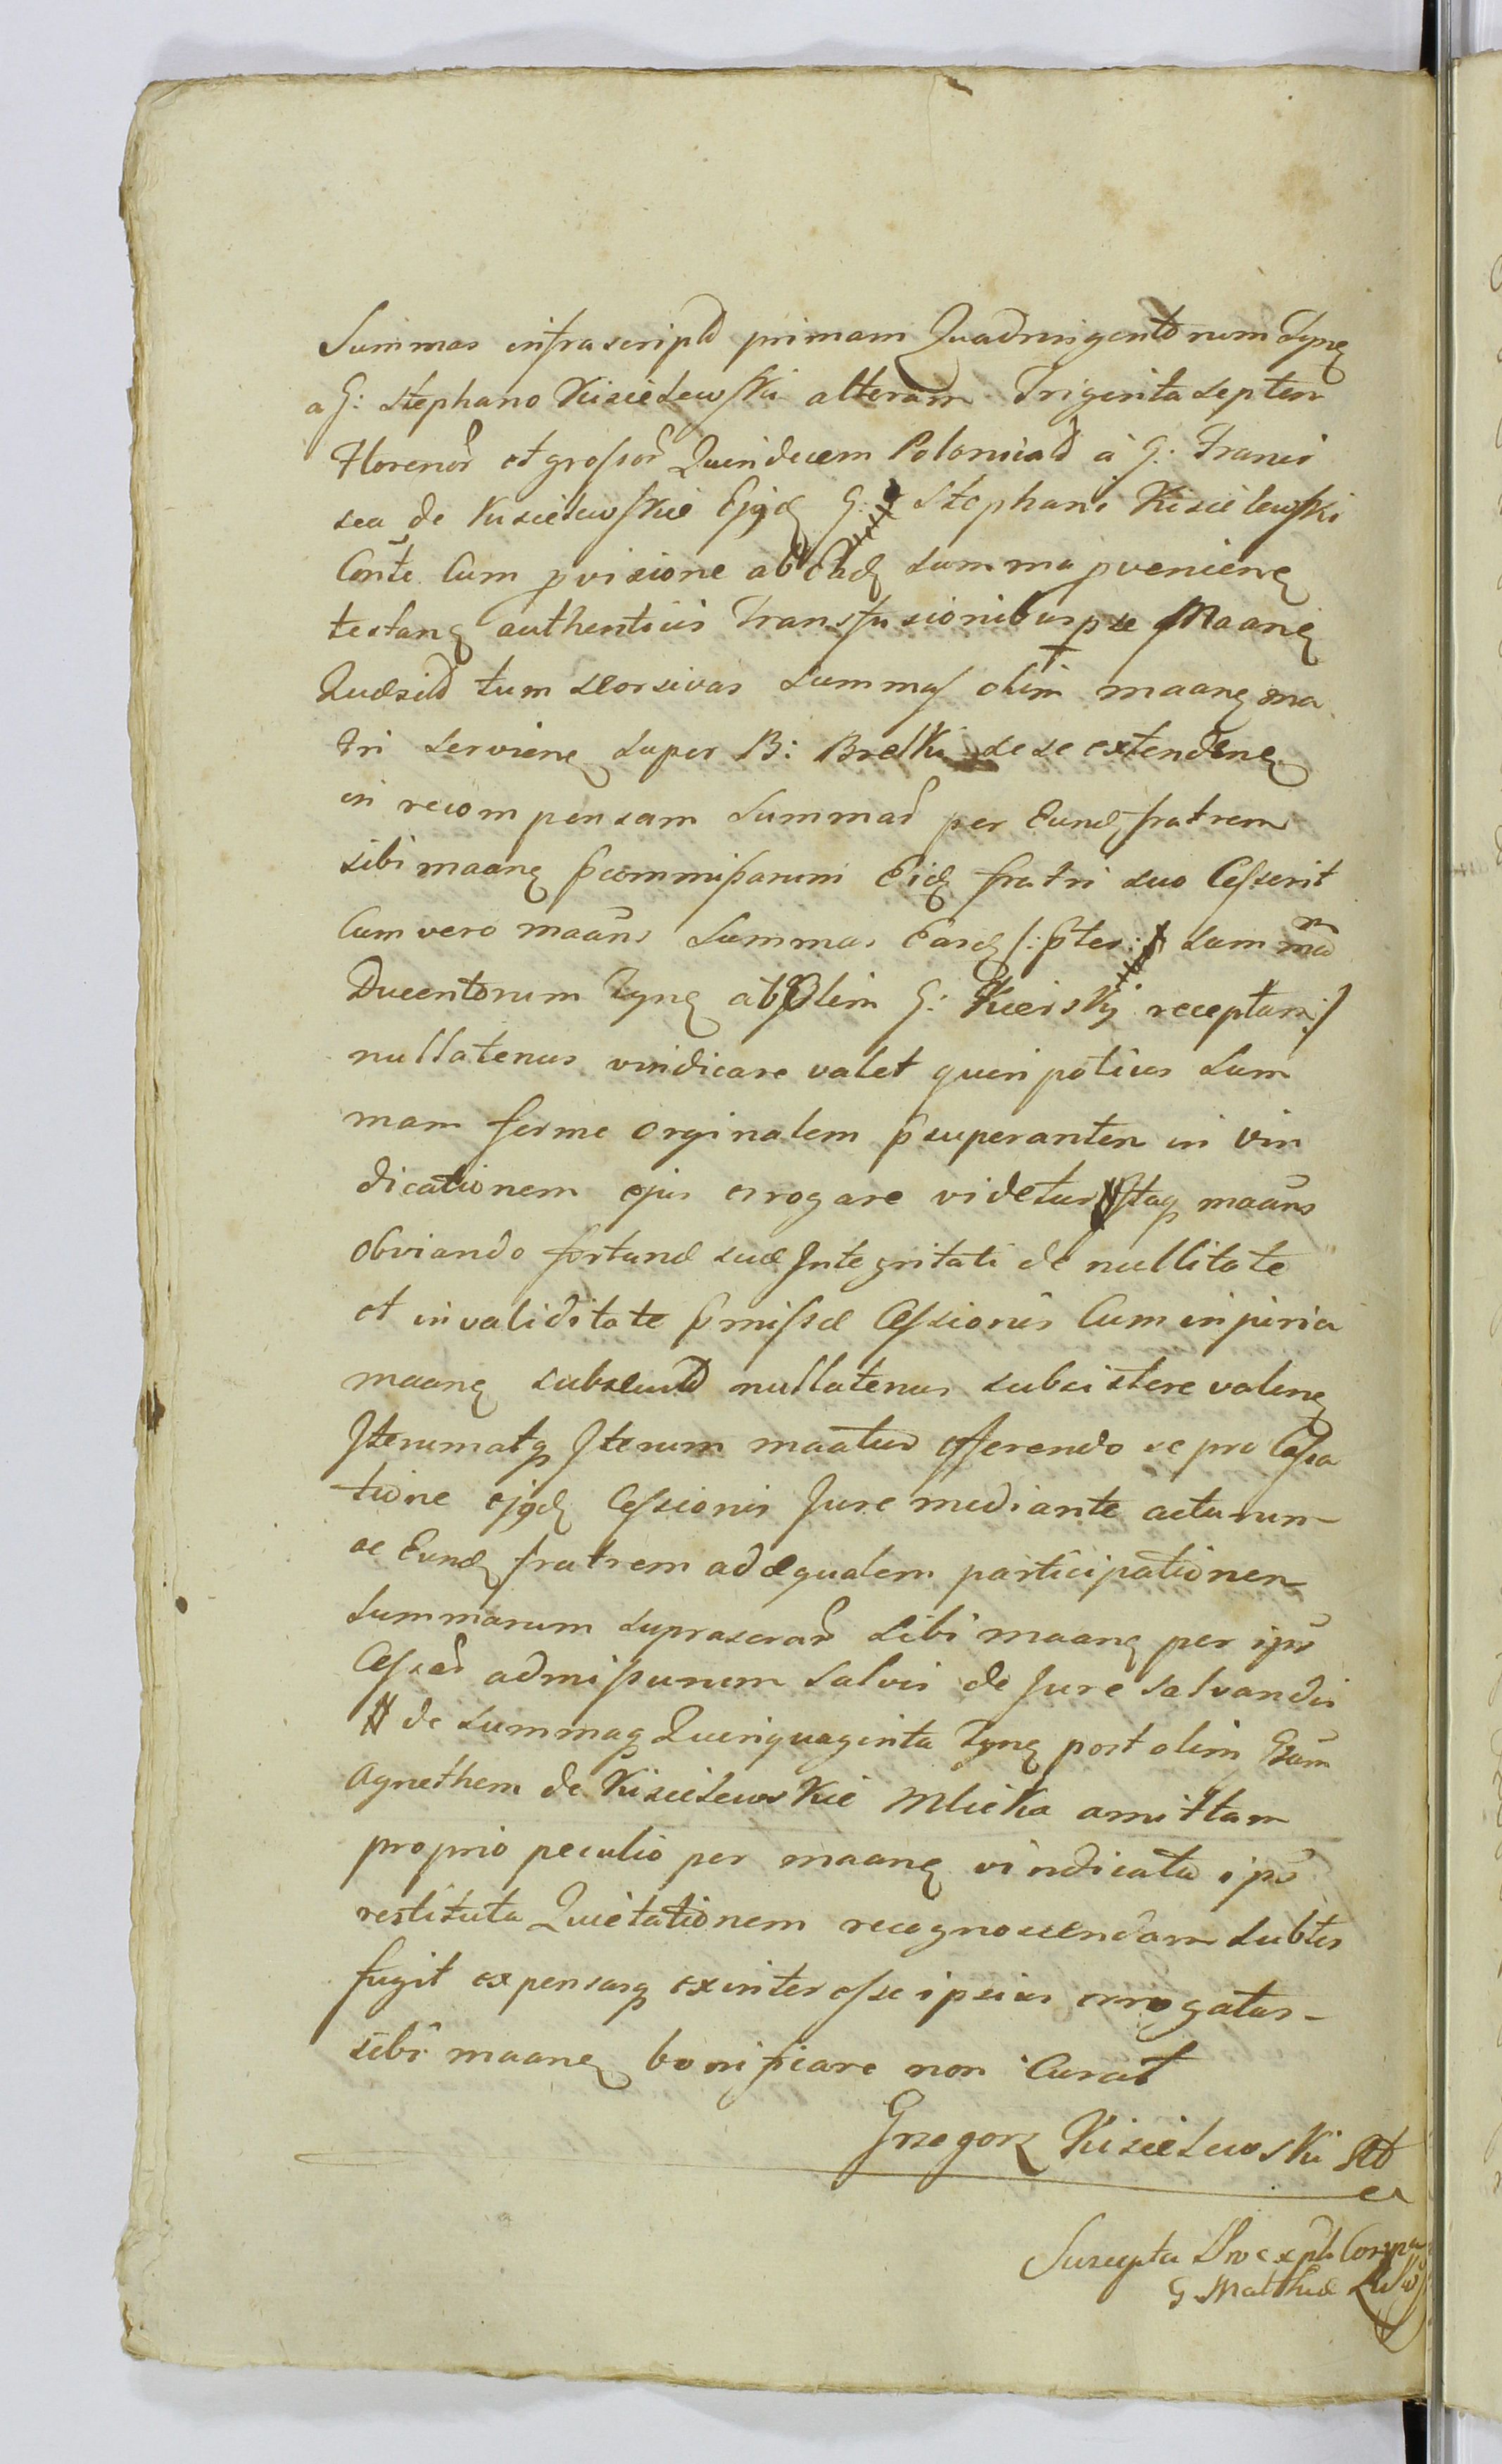 Summas infrascriptas primam Quadringentorum Tynę
a G: Stephano Kisielewski alteram Trigenta septem
Florenor et grossor Quindecem Polonicał à G: Franci
sca de Kisielewskie Ejgdę G: Stephani Kisielewski
Conte Cum pvisione ab Eadę summa pvenienę
testanę authenticis Transfusionibus p se Maanę
Quæsitas tum seorsivas summas olim maanę ma
tri servienę super B: Brelki sese extendenę
in recompensam Summar per Eundę fratrem
sibi maanę pcommissarum Eidę fratri suo Cesserit
Cum vero maans Summas Easdę /: pter: summam
Ducentorum Tynę ab Olim G: receptam :/
nullatenus vindicare valet quin potius Sum
mam ferme orginalem psuperantem in vin
dicationem ejus errogare videtur Itaq maans
obviando fortunæ suæ Integritati de nullitate
et invaliditate pmissæ Cessionis Cum injuria
maanę subsecutæ nullatenus subsistere valenę
Iterumatq Iterum maatur offerendo se pro Cassa
tione ejgdę Cessionis Jure mediante acturum
ac Eundę fratrem ad æqualem participationem
Summarum suprascrar sibi maanę per ips
Cessar admissurum Salvis de Jure salvandis
de summaq Quinquaginta Tynę post olim Gsam
Agnethem de Kisielewskie Mlicka amittam
proprio peculio per maanę vindicata ips
restituta Quietationem recognoscendam subter
fugit expensasq exinteresse ipsius errogatas
sibi maanę bonificare non Curat
Grzegorz Kisielewski
Suscepta
G Matthiæ